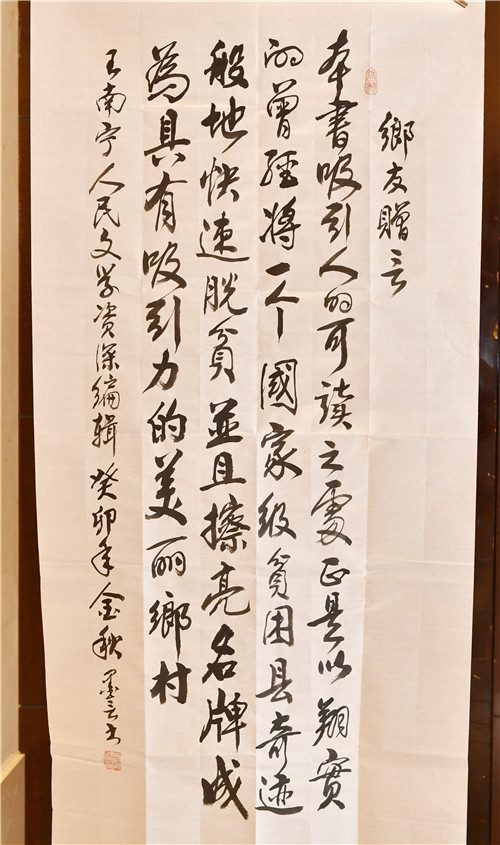 鄉友贈言
本書吸引人的可讀之處正是以翔實
的曾經将一个國家级貧困县奇迹
般地快速脱貧並且擦亮名牌成
為具有吸引力的美丽鄉村
王南宁人民文学资深编辑 癸卯年金秋 墨言书